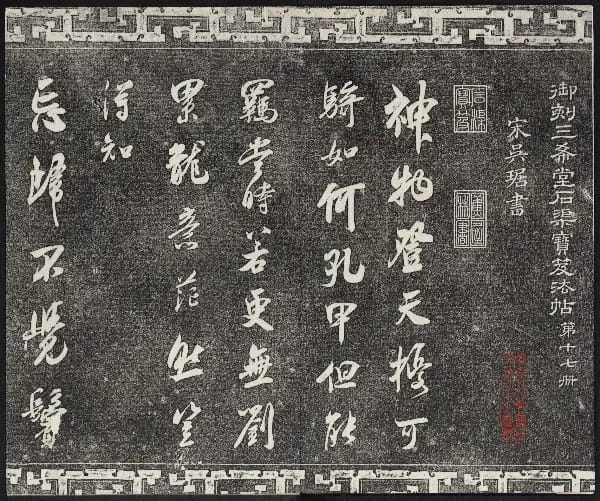 御刻三希堂石渠寶笈法帖 第十七册
宋吳琚書
石渠寶笈
神物登天擾可
騎如何孔甲但能
羈當時若更無劉
累龍意茫然豈
得知
忘歸不覺鬢